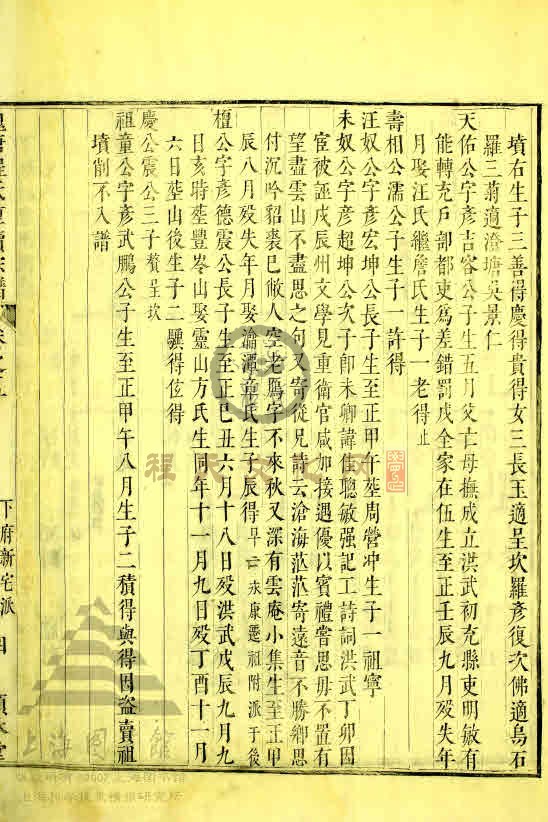 墳右生子三善得慶得貴得女三長玉適呈坎羅彥復次佛適烏石
羅三翁適澄塘吳景仁
天佑公字彥吉容公子生五月父亡母撫成立洪武初充縣吏明敏有
能轉充戶部都吏為差錯罰戍全家在伍生至正壬辰九月歿失年
月娶汪氏繼詹氏生子一老得止
壽相公濡公子生子一許得
汪奴公字彥宏坤公長子生至正甲午塟周營冲生子一祖寧
未奴公字彥超坤公次子卽朱卿諱佳聰敏强記工詩詞洪武丁卯因
宦被誣戍辰州文學見重衛官咸加接遇優以賓禮嘗思毋不置有
望盡雲山不盡思之句又寄從兄詩云滄海茫茫寄遠音不勝鄉思
付沉吟貂裘已敝人空老鴈字不來秋又深有雲庵小集生至正甲
辰八月歿失年月娶瀹潭章氏生子辰得早亡 永康遷祖附派于後
檀公字彥德震公長子生至正己丑六月十八日歿洪武戊辰九月九
日亥時塟豐岺山娶靈山方氏生同年十一月九日歿丁酉十一月
六日塟山後生子二驥得伩得
慶公震公三子贅呈坎
祖童公字彥武鵬公子生至正甲午八月生子二積得與得因盜賣祖
墳削不入譜
下府新宅派
四
程氏文化网
上海图书馆